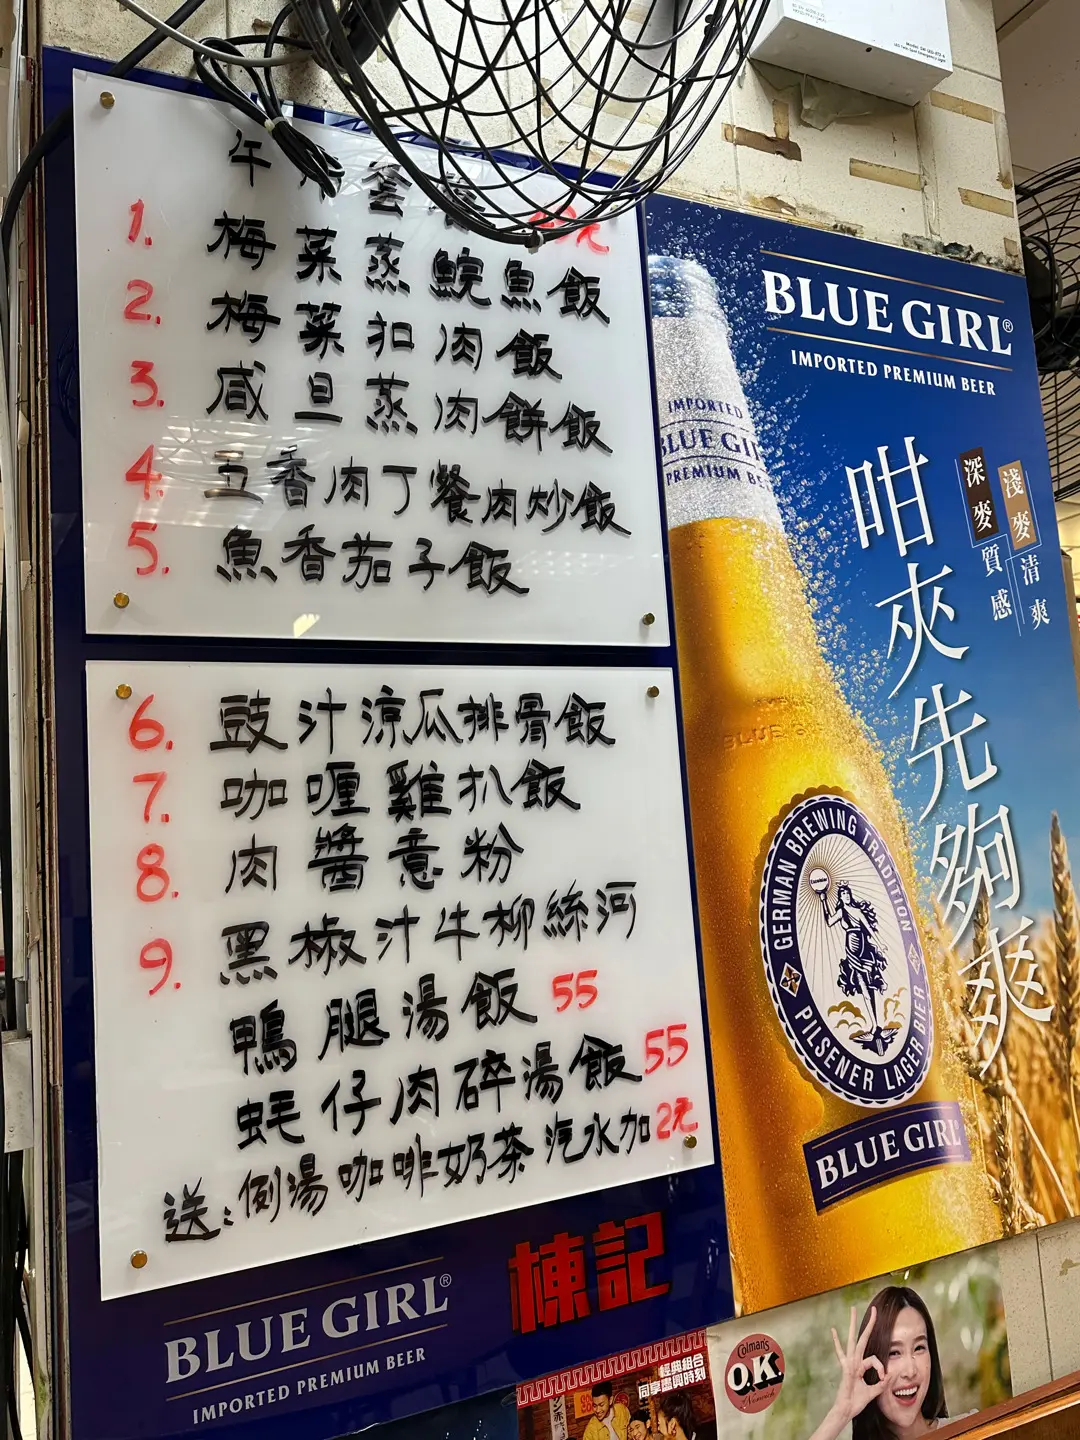 午
元
1. 梅菜蒸鯇魚飯
2. 梅菜扣肉飯
3. 咸旦蒸肉餅飯
4. 五香肉丁餐肉炒飯
5. 魚香茄子飯
6. 豉汁涼瓜排骨飯
7. 咖喱雞扒飯
8. 肉醬意粉
9. 黑椒汁牛柳絲河
鴨腿湯飯 55
蚝仔肉碎湯飯 55
送：例湯咖啡奶茶 汽水加2元
BLUE GIRL®
IMPORTED PREMIUM BEER
棟記
BLUE GIRL®
IMPORTED PREMIUM BEER
深麥質感
淺麥清爽
咁夾先夠爽
IMPORTED
BLUE GI
PREMIUM BE
GERMAN BREWING TRADITION
PILSENER LAGER BIER
BLUE GIRL
經典組合
同享盡興時刻
Colman's
O.K.
Norwich